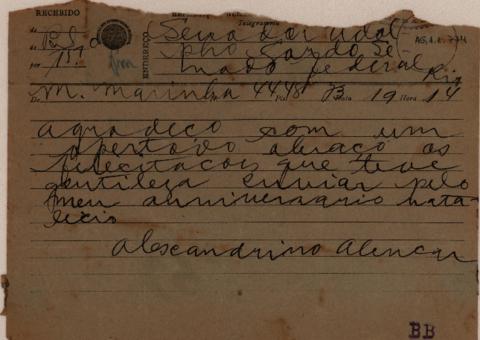 RECEBIDO
Telegramma
de
de
por 15,70
ENDEREÇO
Senador Udol
pho Gordo Se
nado Federal
Rio
De M. Marinha Nº 4448 Pal 13 Data 19 Hora 14
agradeço com um
apertado abraço as
felecitações que teve
gentileza enviar pelo
meu anniversario nata
licio
Alexandrino Alencar
BB